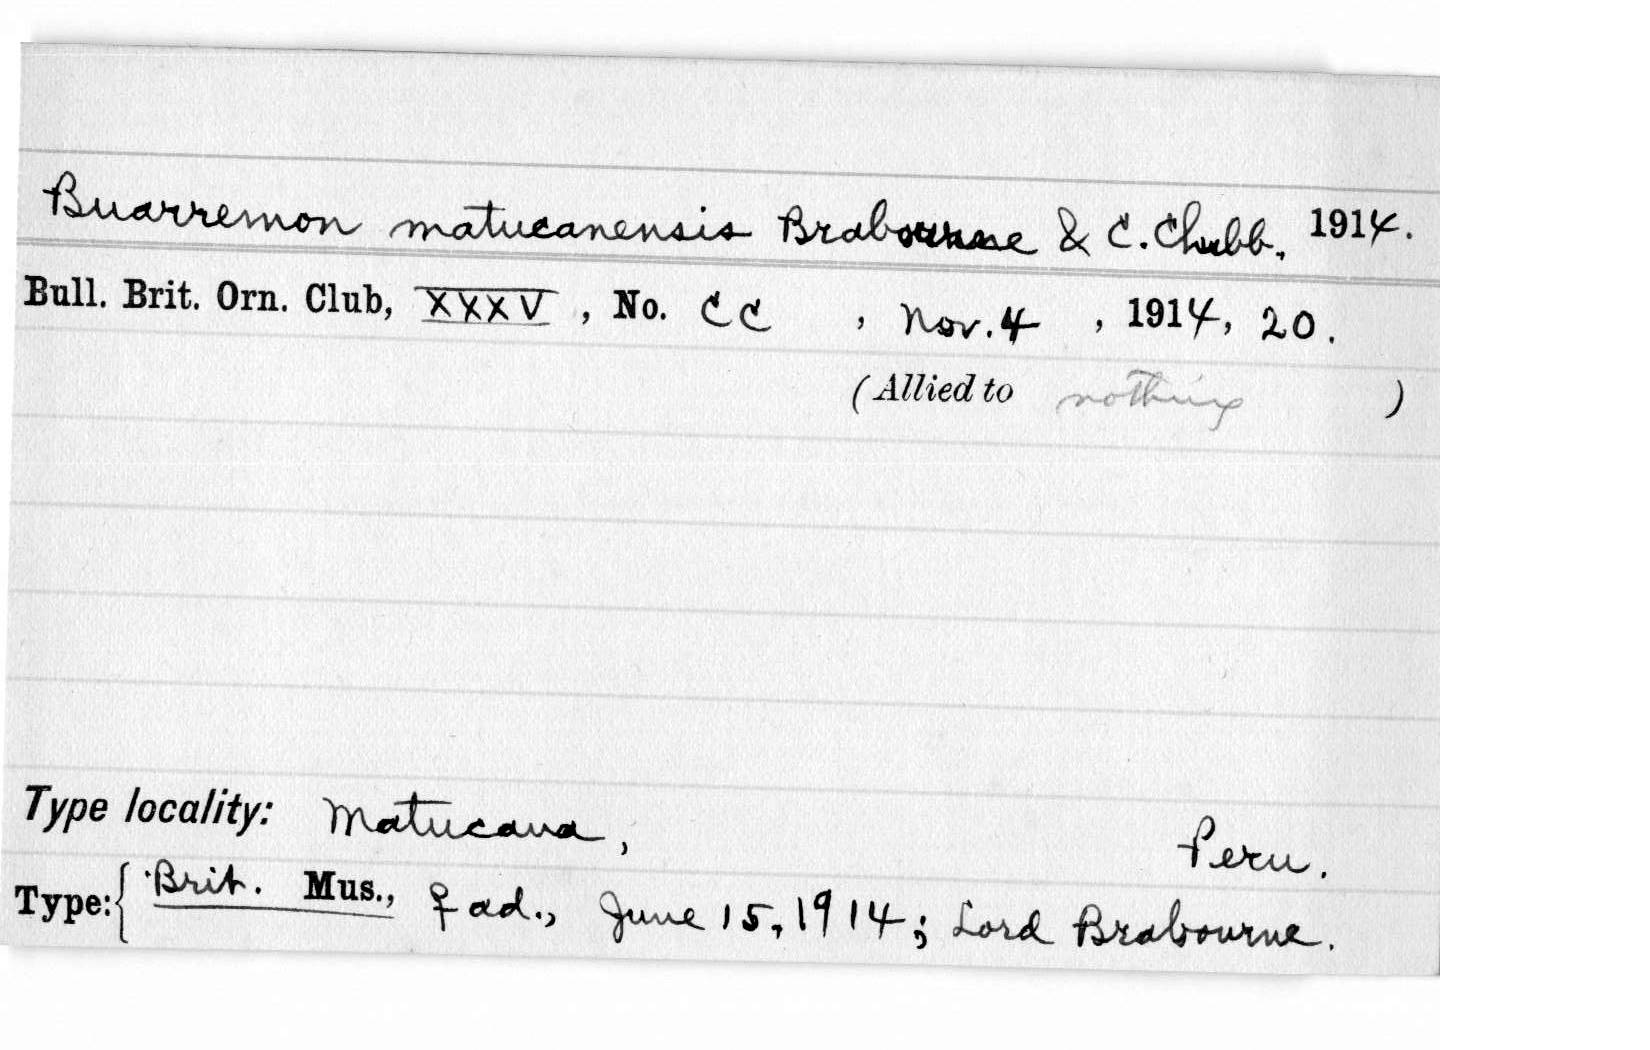 Buarremon matucanensis Brabourne & C. Chubb, 1914.
Bull. Brit. Orn. Club, XXXV, No. CC, Nov. 4, 1914, 20.
(Allied to nothing)
Type locality: Matucana, Peru.
Type: { Brit. Mus., ♀ ad., June 15, 1914; Lord Brabourne.